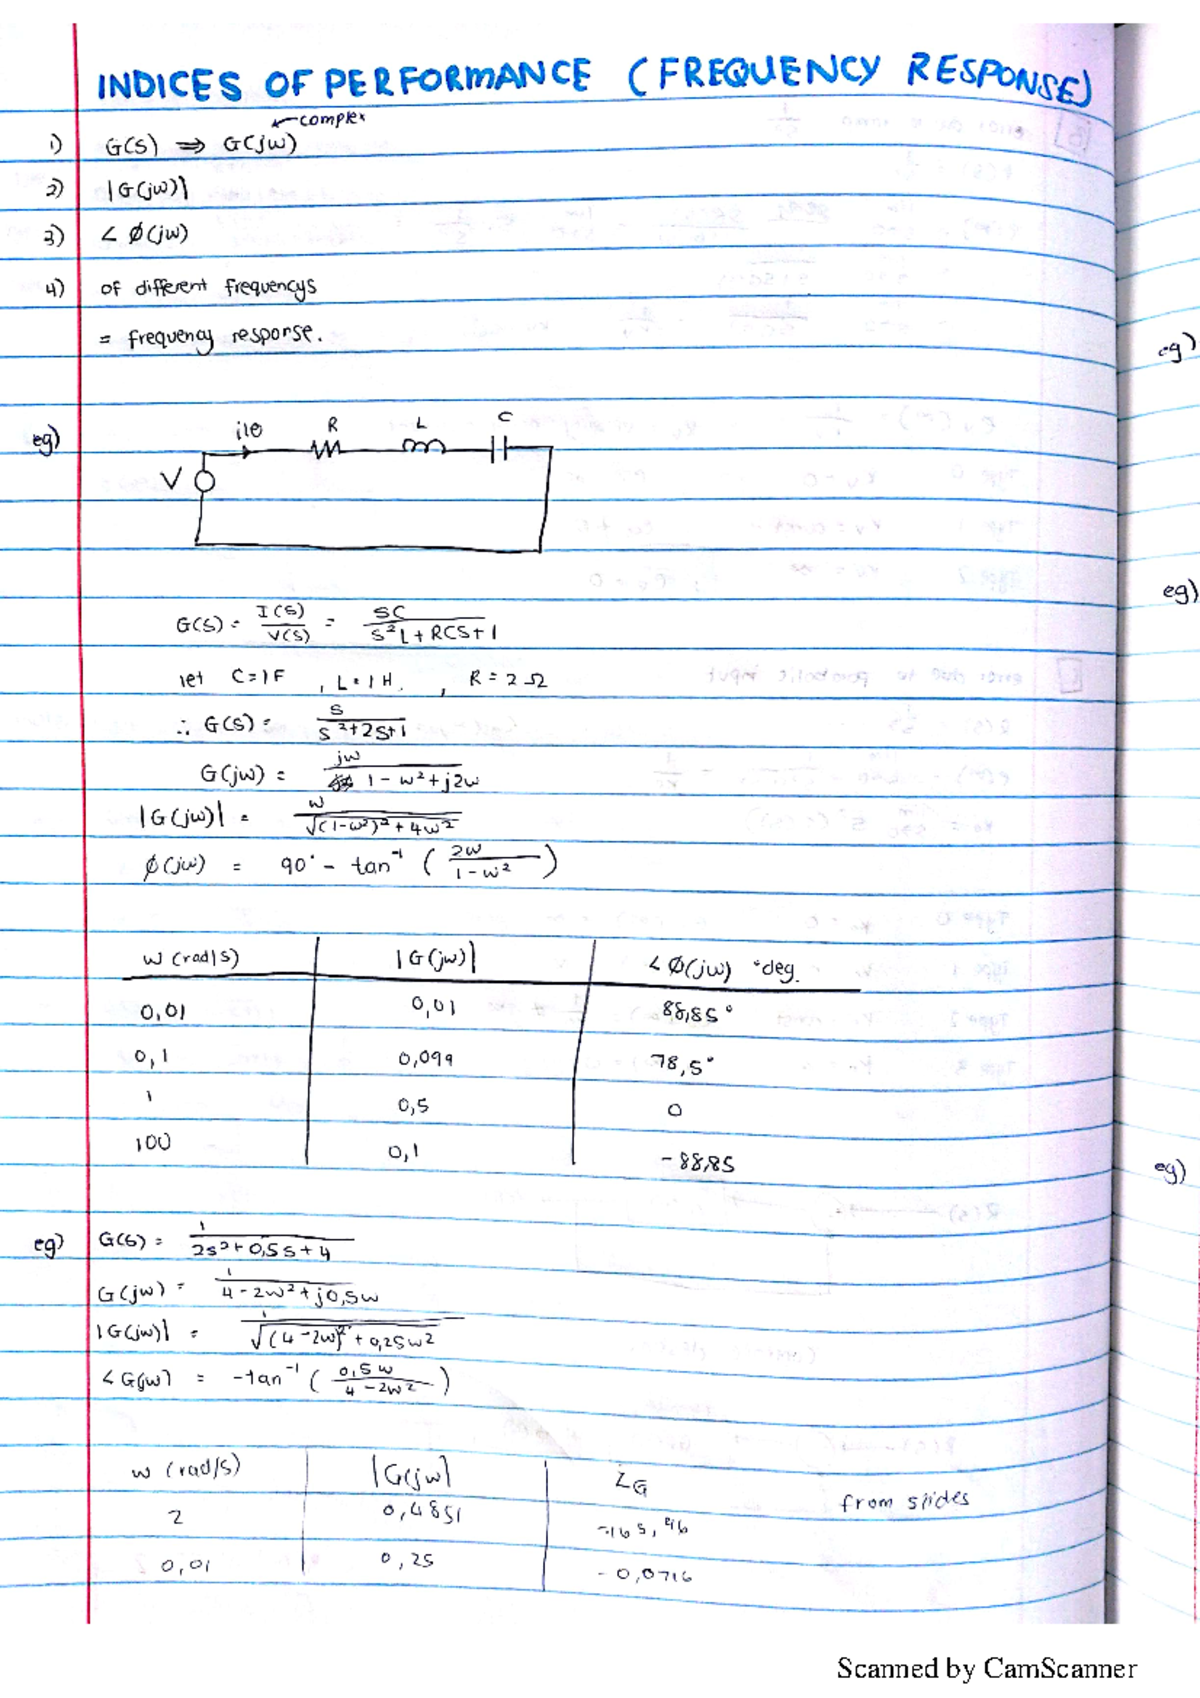 INDICES OF PERFORMANCE (FREQUENCY RESPONSE)
complex
1) G(S) ⇒ G(jw)
2) |G(jw)|
3) ∠ Ø(jw)
4) of different frequencys
= frequency response.
eg)
eg)
R L C
V
G(S) = I(S)/V(S) = SC/(S²L + RCS + 1)
eg)
let C = 1F , L = 1H. , R = 2Ω
∴ G(S) = s/(s²+2s+1)
G(jw) = jw/(1 - w² + j2w)
|G(jw)| = w/√((1-w²)² + 4w²)
φ(jw) = 90° - tan⁻¹ (2w/(1-w²))
w (rad/s) |G(jw)| ∠ Ø(jw) °deg.
0,01 0,01 88,85°
0,1 0,099 78,5°
1 0,5 0
100 0,1 -88,85
eg)
eg) G(s) = 1/(2s² + 0,5s + 4)
G(jw) = 1/(4 - 2w² + j0,5w)
|G(jw)| = 1/√((4-2w)² + 0,25w²)
∠G(jw) = -tan⁻¹ (0,5w/(4-2w²))
w (rad/s) |G(jw)| ∠G
from slides
2 0,4851
0,01 0,25 -0,0716
Scanned by CamScanner